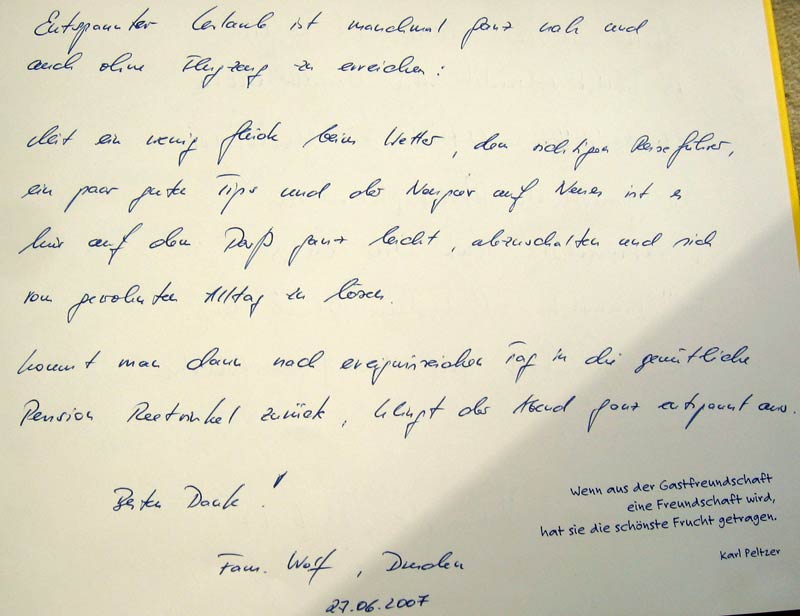 Entspannter Urlaub ist manchmal ganz nah und
auch ohne Flugzeug zu erreichen:
Mit ein wenig Glück beim Wetter, den richtigen Reiseführer,
ein paar gute Tips und der Neugier auf Neues ist es
hier auf dem Darß ganz leicht, abzuschalten und sich
vom gewohnten Alltag zu lösen.
Kommt man dann nach ereignisreichen Tag in die gemütliche
Pension Reetwinkel zurück, klingt der Abend ganz entspannt aus.
Besten Dank!
Wenn aus der Gastfreundschaft
eine Freundschaft wird,
hat sie die schönste Frucht getragen.
Karl Peltzer
Fam. Wolf, Dresden
27.06.2007